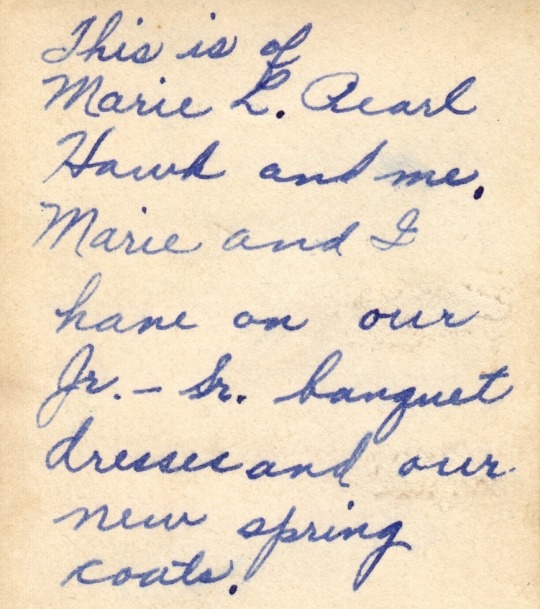 This is of
Marie L. Pearl
Hawk and me.
Marie and I
have on our
Jr. - Sr. banquet
dresses and our
new spring
coats.